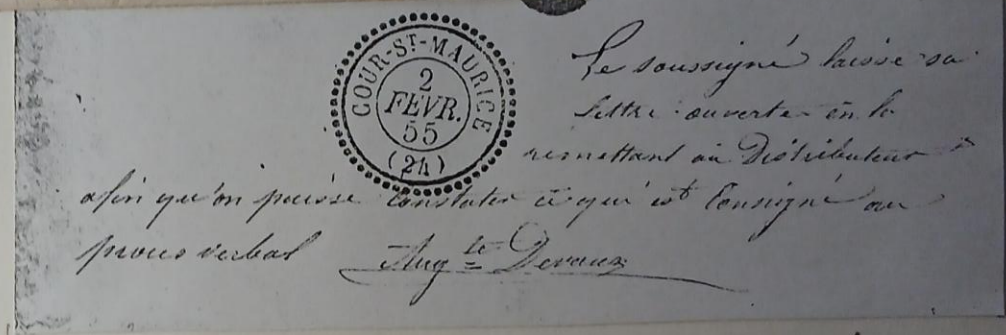 COUR-ST-MAURICE
2
FÉVR.
55
(24)
Le soussigné laisse sa
lettre ouverte en la
remettant au Distributeur
afin qu'on puisse constater ce qui est consigné au
procès verbal Augte Devaux